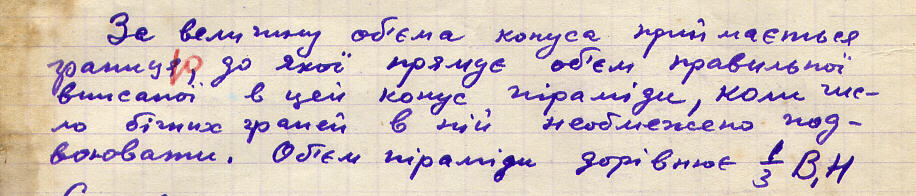 За величину об'єма конуса приймається
границя, до якої прямує об'єм правильної
вписаної в цей конус піраміди, коли чис-
ло бічних граней в ній необмежено под-
воювати. Об'єм піраміди дорівнює 1/3 B₁H